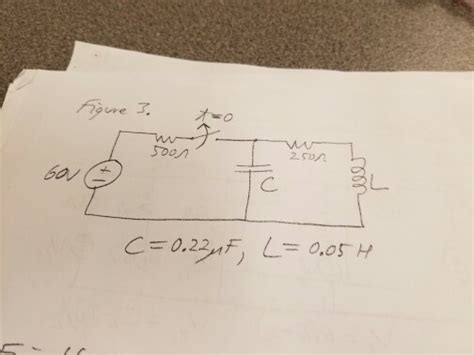 Figure 3.
t=0
500Ω
250Ω
60V
+
-
C
L
C=0.22µF, L= 0.05 H